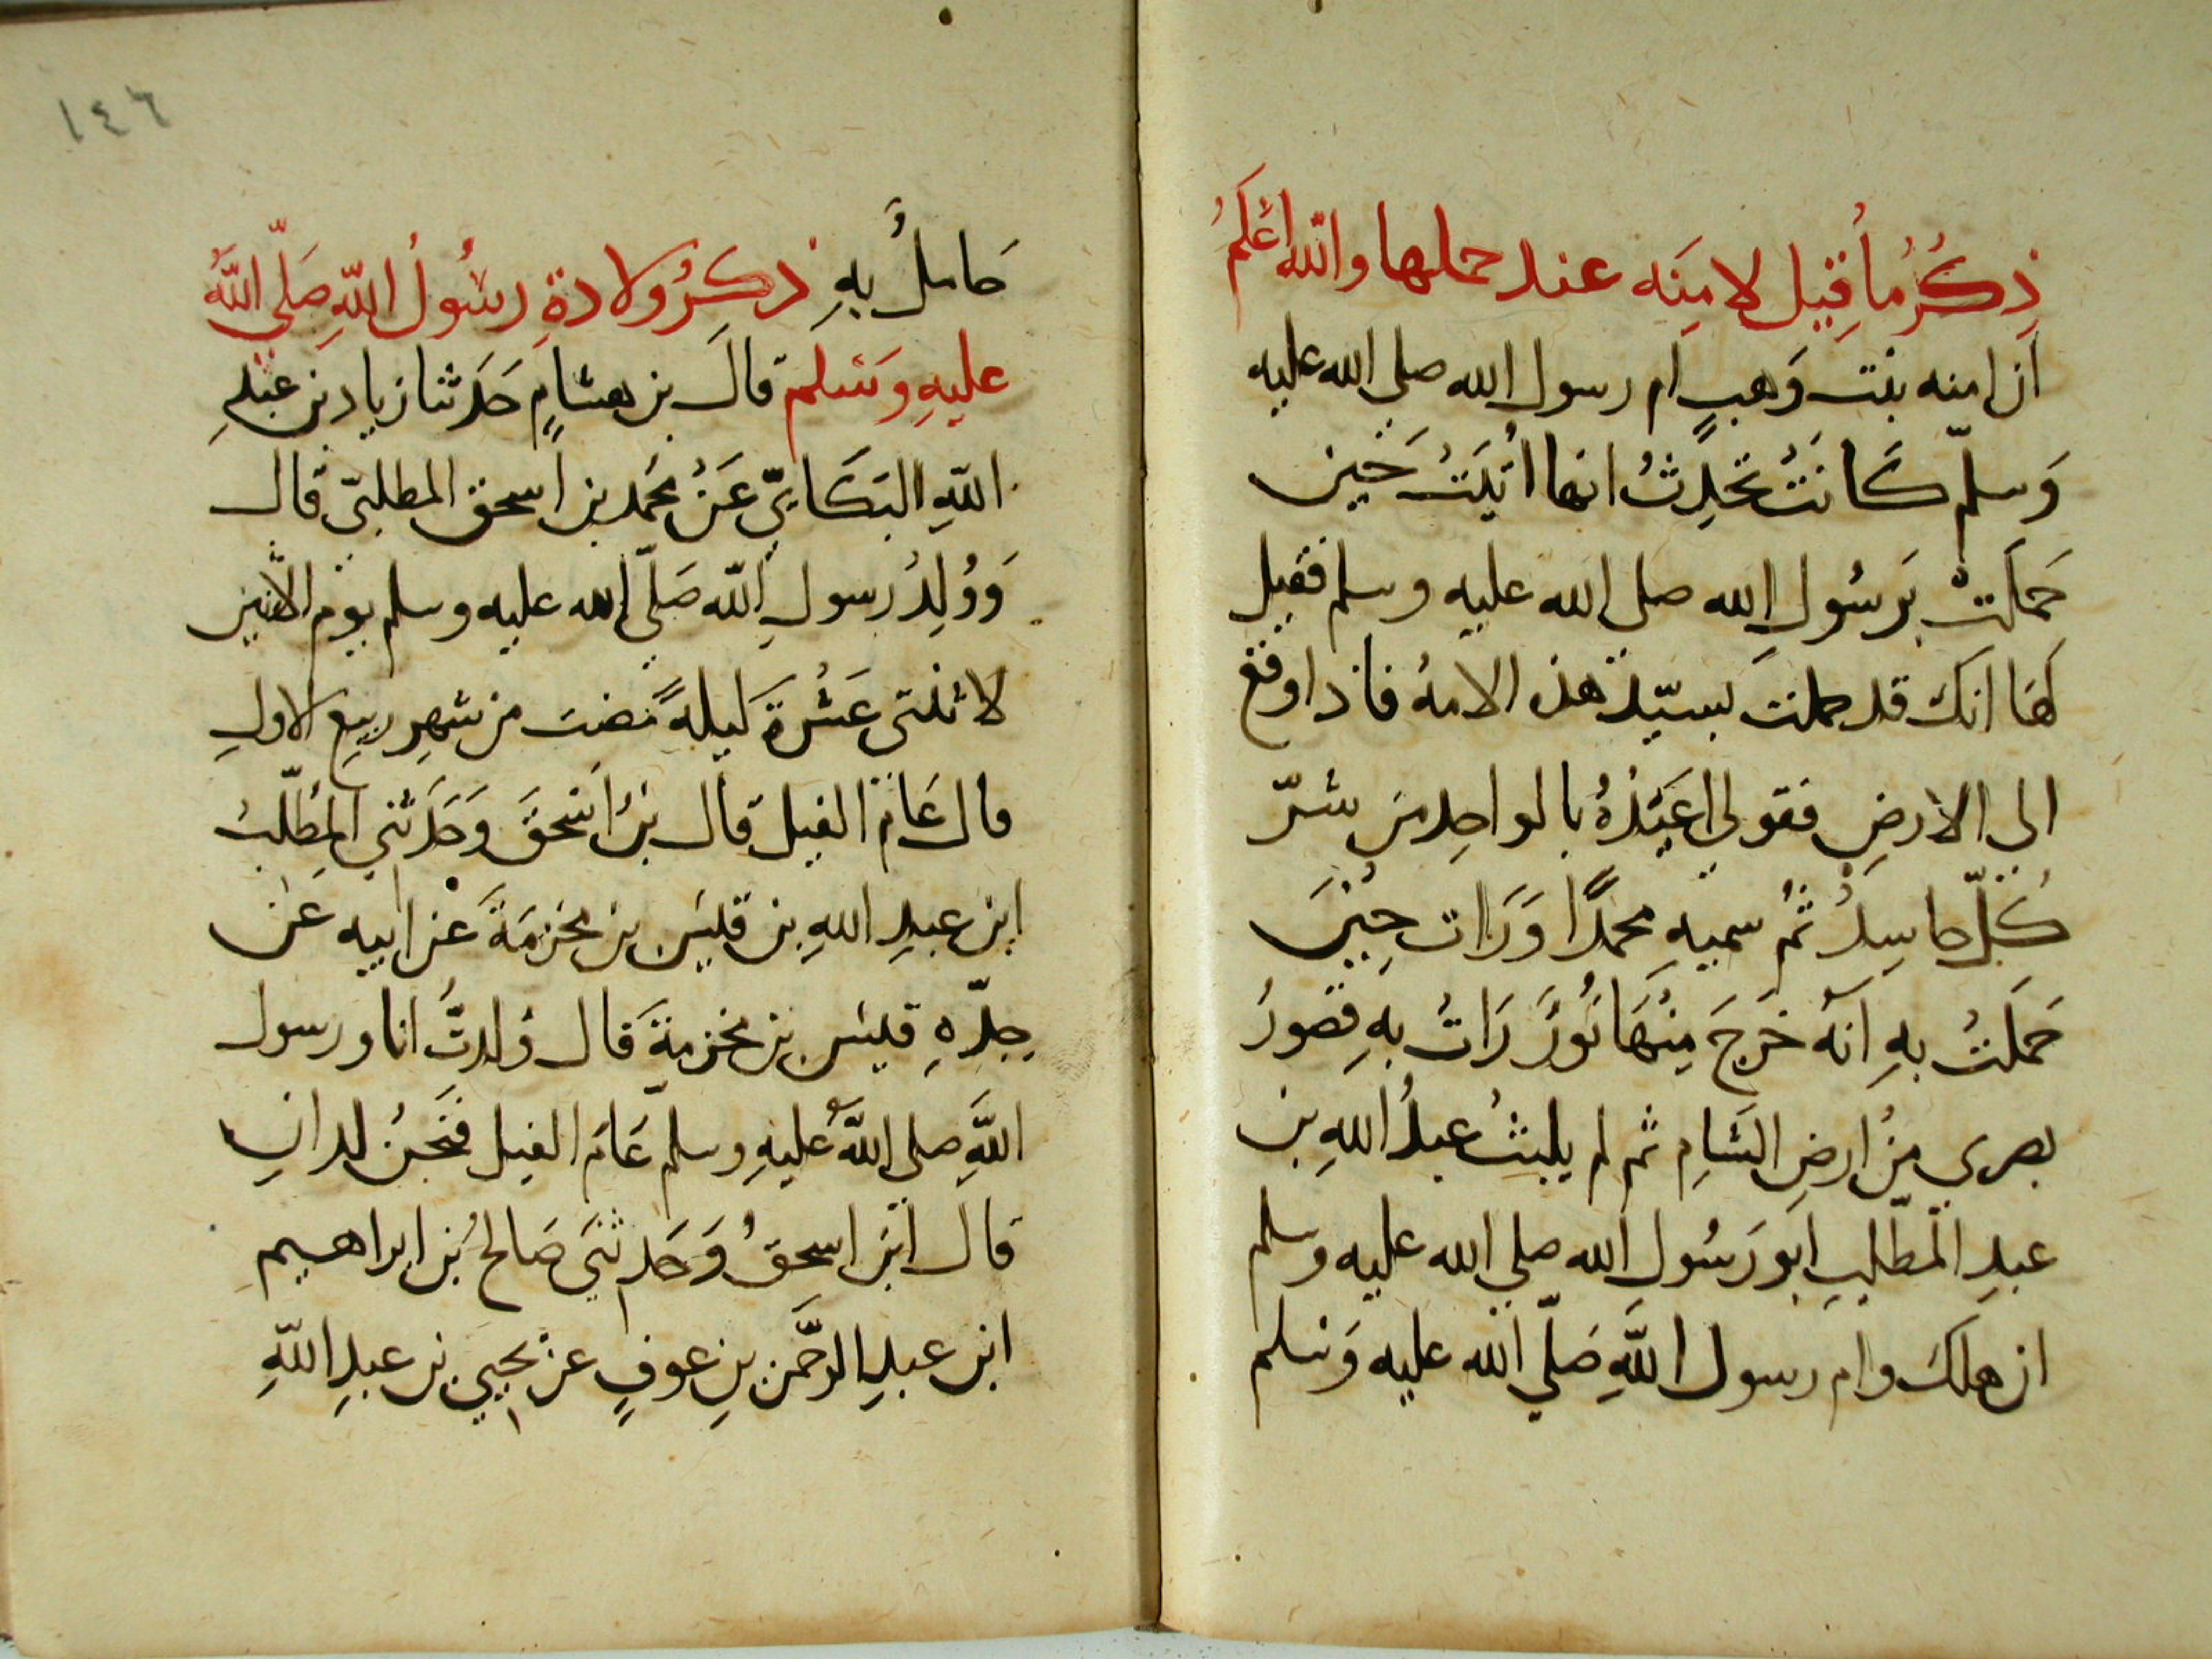 ذِكْرُ مَا قِيلَ لامِنَه عند حملها والله اعْلَمُ
ان امنه بنت وَهبٍ ام رسول الله صلى الله عليه
وَسلمّ كَانَتْ تحَدِثُ انها اُتيَتْ حَيْن
حَمَلَتْ بَرسُولِ الله صلى الله عليه وسلم فقيل
لهَا انكَ قد حملت بسيّد هذه الامهُ فاذا وقع
الى الارضِ فقولي اعيَذهُ بالواحِد من شرّ
كُلّ حاسِدٍ ثُم سميهِ محمدًا وَرَات حِيْنَ
حَمَلتْ بهِ انهُ خَرجَ مِنْهَا نُورٌ رَاتْ بهِ قصورُ
بصرى مِنْ ارضِ الشَامِ ثم لم يلبثْ عبدُ اللهِ بن
عبدِ المطّلبِ ابو رَسُولِ الله صلي الله عليه وسلم
ان هلكَ وام رسول اللَّهِ صَلّي الله عليه وَسلم
١٤٦
حَاملٌ بِهِ ذِكرُ ولادةِ رسُولُ اللّهِ صَلّى اللّهُ
عليهِ وَسَلم قالَ بن هشامٍ حَدَثنا زياد بن عَبْدِ
اللّهِ البَكَايّ عَنْ محَمد بن اسحق المطلبىّ قال
وَوُلِدُ رسولِ اللّه صَلّى الله عليه وسلم يوم الاثنين
لاثنتى عَشْرَةَ لَيلهً مَضت من شهرِ ربيع الاولِ
قال عَامَ الفيل قال بنُ اسْحقَ وَحَدَثني المطّلبُ
ابن عبدِ اللهِ بن قليَس بن مخرَمَةَ عن ابيه عن
جِدّهِ قليَس بن مخرمةَ قال وُلدتُ انا ورسول
اللَّهِ صلى اللَّهُ عليهِ وسلم عَامَ الفيل فنَحنُ لدانِ
قال ابن اسحقُ وَحَدثنيَ صَالحُ بن ابراهيم
ابن عبدِ الرحَّمن بنِ عوفٍ عن يحيي بن عبدِ اللّهِ